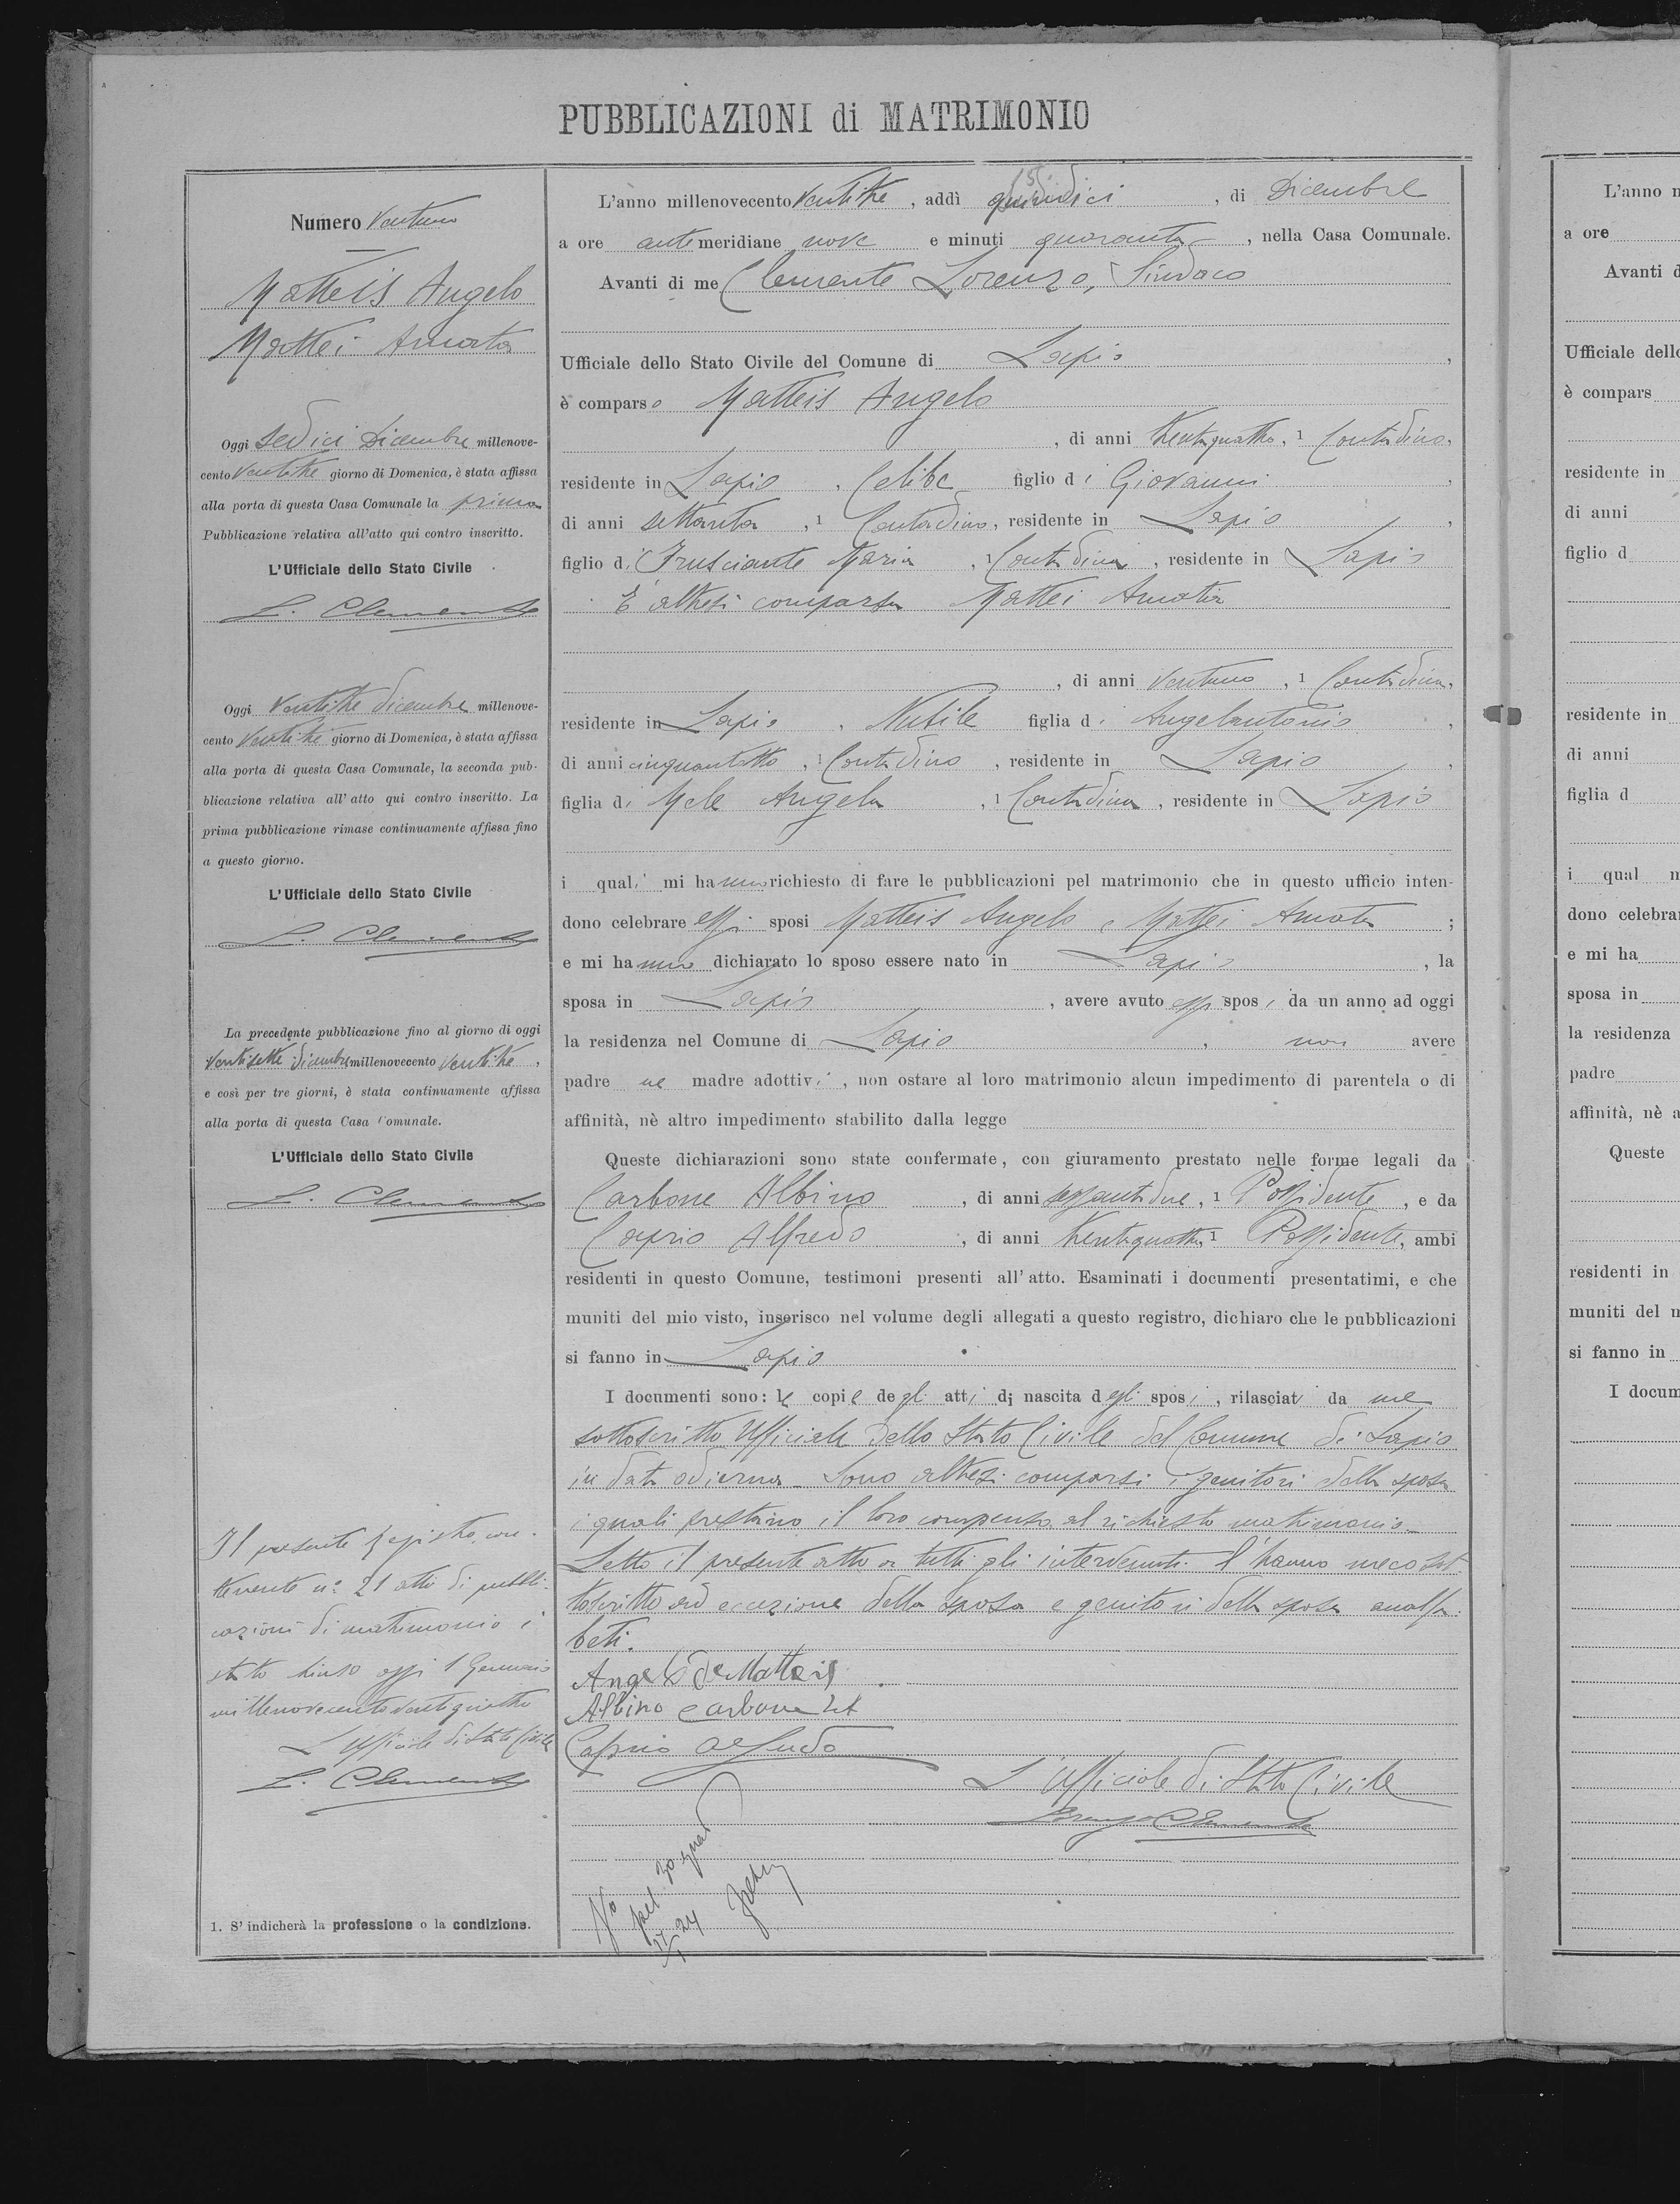 PUBBLICAZIONI di MATRIMONIO
Numero Ventuno
Matteis Angelo
Mattei Amata
Oggi sedici Dicembre millenove-
cento ventitre giorno di Domenica, è stata affissa
alla porta di questa Casa Comunale la prima
Pubblicazione relativa all'atto qui contro inscritto.
L'Ufficiale dello Stato Civile
L. Clemente
Oggi Ventitre dicembre millenove-
cento Ventitre giorno di Domenica, è stata affissa
alla porta di questa Casa Comunale, la seconda pub-
blicazione relativa all' atto qui contro inscritto. La
prima pubblicazione rimase continuamente affissa fino
a questo giorno.
L'Ufficiale dello Stato Civile
L. Clemente
La precedente pubblicazione fino al giorno di oggi
Ventisette dicembre millenovecento ventitre,
e così per tre giorni, è stata continuamente affissa
alla porta di questa Casa Comunale.
L'Ufficiale dello Stato Civile
L. Clemente
Il presente registro con-
tenente n° 21 atti di pubbli-
cazioni di matrimonio è
stato chiuso oggi 1 Gennaio
millenovecentoventiquattro
L'Ufficiale di Stato Civile
L. Clemente
1. S' indicherà la professione o la condizione.
15
L'anno millenovecento Ventitre, addì quindici, di Dicembre
a ore antemeridiane nove e minuti quaranta, nella Casa Comunale.
Avanti di me Clemente Lorenzo, Sindaco
Ufficiale dello Stato Civile del Comune di Lapio,
è comparso Matteis Angelo
, di anni trentaquattro, 1 Contadino,
residente in Lapio, Celibe figlio di Giovanni,
di anni settanta, 1 Contadino, residente in Lapio,
figlio di Frusciante Maria, 1 Contadina, residente in Lapio
E' altresì comparsa Mattei Amata
, di anni ventuno, 1 Contadina,
residente in Lapio, Nubile figlia di Angelantonio,
di anni cinquantotto, 1 Contadino, residente in Lapio,
figlia di Mele Angela, 1 Contadina, residente in Lapio
i quali mi hanno richiesto di fare le pubblicazioni pel matrimonio che in questo ufficio inten-
dono celebrare essi sposi Matteis Angelo e Mattei Amata;
e mi hanno dichiarato lo sposo essere nato in Lapio, la
sposa in Lapio, avere avuto essi sposi da un anno ad oggi
la residenza nel Comune di Lapio, non avere
padre ne madre adottivi, non ostare al loro matrimonio alcun impedimento di parentela o di
affinità, nè altro impedimento stabilito dalla legge
Queste dichiarazioni sono state confermate, con giuramento prestato nelle forme legali da
Carbone Albino, di anni sessantadue, 1 Possidente, e da
Caprio Alfredo, di anni trentaquattro, 1 Possidente, ambi
residenti in questo Comune, testimoni presenti all' atto. Esaminati i documenti presentatimi, e che
muniti del mio visto, inserisco nel volume degli allegati a questo registro, dichiaro che le pubblicazioni
si fanno in Lapio
I documenti sono: le copie degli atti di nascita degli sposi, rilasciati da me
sottoscritto Ufficiale dello Stato Civile del Comune di Lapio
in data odierna. Sono altresì comparsi i genitori della sposa
i quali prestano il loro consenso al richiesto matrimonio.
Letto il presente atto a tutti gli intervenuti l'hanno meco sot
toscritto ad eccezione della sposa e genitori della sposa analfa-
beti.
Angelo De Matteis
Albino Carbone
Caprio Alfredo
L'Ufficiale di Stato Civile
Lorenzo Clemente
L'anno
a ore
Avanti
Ufficiale dello
è compars
residente in
di anni
figlio d
residente in
di anni
figlia d
i qual
dono celebra
e mi ha
sposa in
la residenza
padre
affinità, nè a
Queste
residenti in
muniti del
si fanno in
I docum